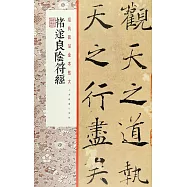 褚遂良陰符經
觀天之道執
天之行盡矣